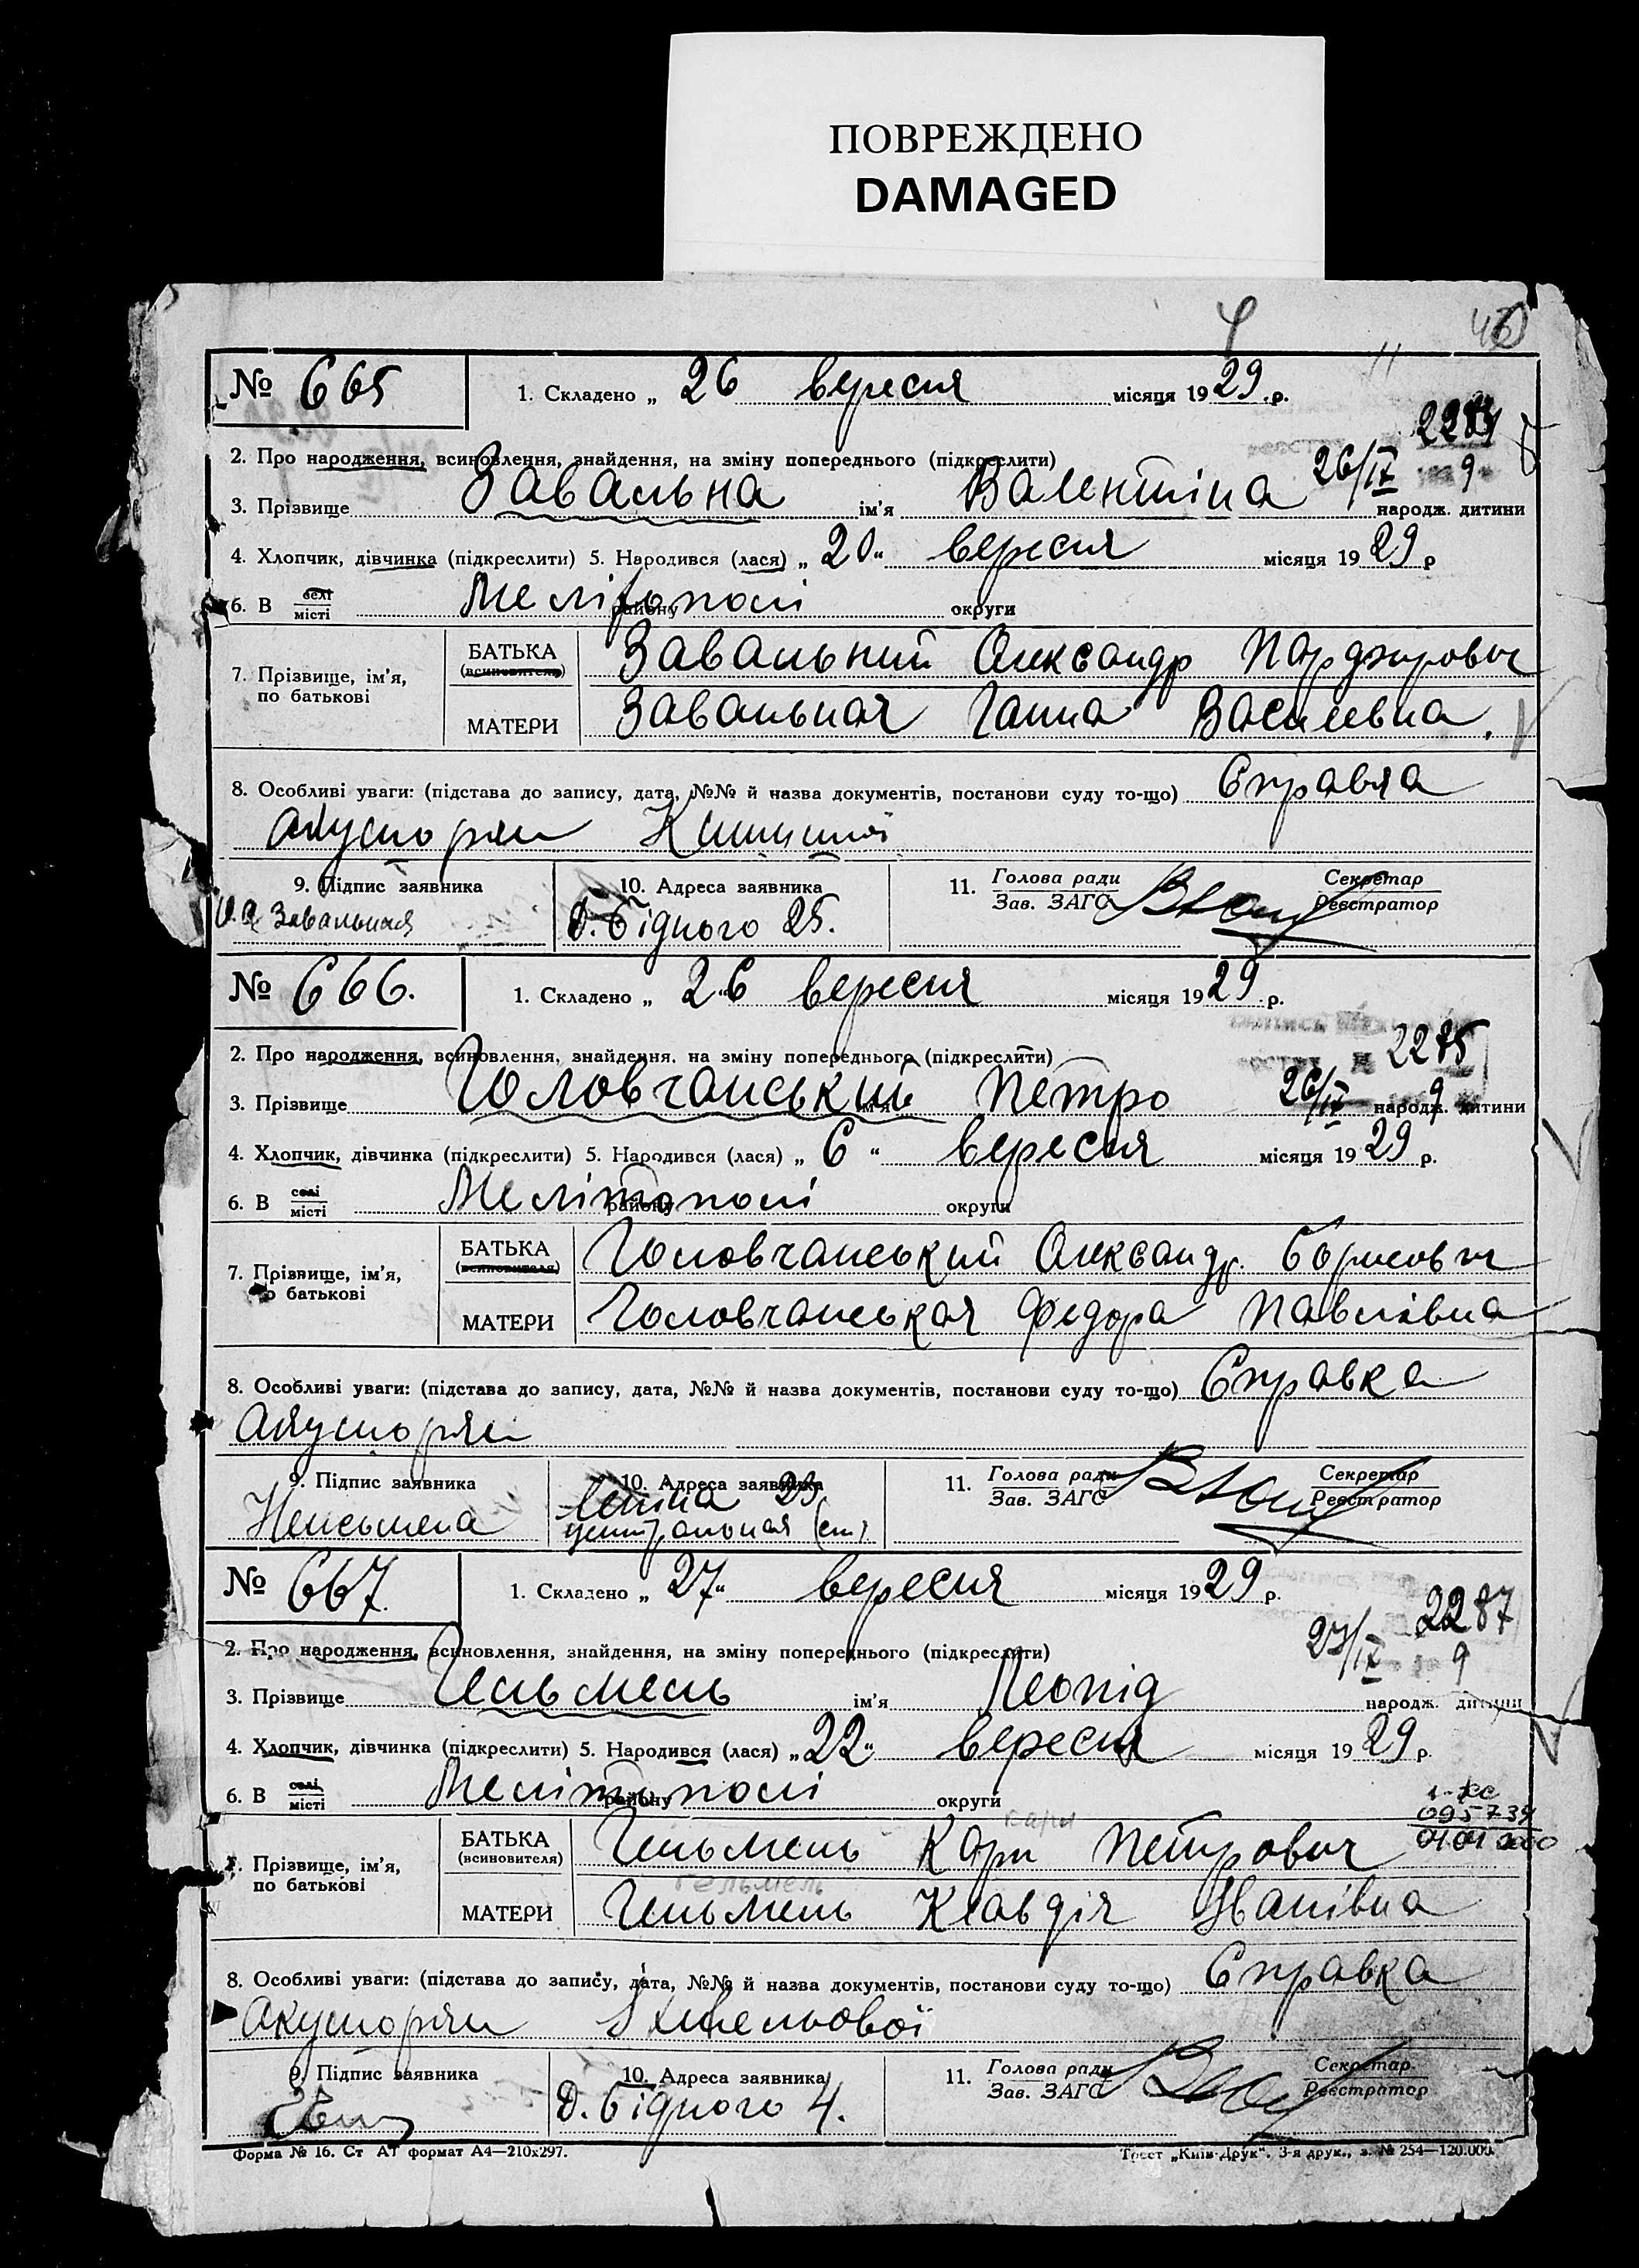 ПОВРЕЖДЕНО
DAMAGED
№ 665 1. Складено „ 26 вересня місяця 1929 р.
2. Про народження, всиновлення, знайдення, на зміну попереднього (підкреслити) 26/IX 9
3. Прізвище Завальна ім'я Валентіна народж. дитини
4. Хлопчик, дівчинка (підкреслити) 5. Народився (лася) „ 20 “ вересня місяця 1929 р
6. В селі місті Мелітополі району округи
7. Прізвище, ім'я, по батькові
БАТЬКА (всиновителя) Завальний Олександр
МАТЕРИ Завальная Ганна Василевна.
8. Особливі уваги: (підстава до запису, дата, №№ й назва документів, постанови суду то-що) Справка
акушорки
9. Підпис заявника 10. Адреса заявника 11. Голова ради Зав. ЗАГС Секретар Реєстратор
Завальная Д. Бідного 25.
№ 666. 1. Складено „ 26 вересня місяця 1929 р.
2285
2. Про народження, всиновлення, знайдення, на зміну попереднього (підкреслити)
3. Прізвище Головчанський ім'я Петро 26/IX 9 народж. дитини
4. Хлопчик, дівчинка (підкреслити) 5. Народився (лася) „ 6 “ вересня місяця 1929 р.
6. В селі місті Мелітополі району округи
7. Прізвище, ім'я, по батькові
БАТЬКА (всиновителя) Головчанський Олександр Борисович
МАТЕРИ Головчанськая Федора Павлівна
8. Особливі уваги: (підстава до запису, дата, №№ й назва документів, постанови суду то-що) Справка
Акушорки
9. Підпис заявника 10. Адреса заявника 11. Голова ради Зав. ЗАГС Секретар Реєстратор
Леніна 23
центральная
№ 667. 1. Складено „ 27 “ вересня місяця 1929 р.
2287
2. Про народження, всиновлення, знайдення, на зміну попереднього (підкреслити) 27/IX 9
3. Прізвище Гельмель ім'я Леонід народж. дитини
4. Хлопчик, дівчинка (підкреслити) 5. Народився (лася) „ 22 “ вересня місяця 1929 р.
6. В селі місті Мелітополі району округи
095739
7. Прізвище, ім'я, по батькові
БАТЬКА (всиновителя) Гельмель Карл Петрович
Гельмель
МАТЕРИ Гельмель Клавдія Іванівна
8. Особливі уваги: (підстава до запису, дата, №№ й назва документів, постанови суду то-що) Справка
Акушорки
9. Підпис заявника 10. Адреса заявника 11. Голова ради Зав. ЗАГС Секретар Реєстратор
Д. Бідного 4.
Форма № 16. Ст АТ формат А4—210х297. Трест „Київ-Друк“. 3-я друк., з. № 254—120.000.